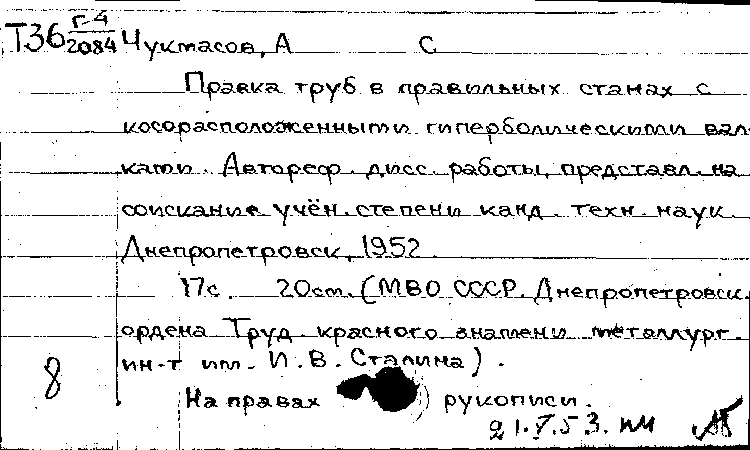 Т36 Г-4/2084 Чукмасов, А С
Правка труб в правильных станах с
косорасположенными гиперболическими вал-
ками. Автореф. дисс. работы, представл. на
соискание учён. степени канд. техн. наук
Днепропетровск, 1952.
17с. 20см. (МВО СССР. Днепропетровск.
ордена Труд. красного знамени металлург.
ин-т им. И. В. Сталина).
8
На правах рукописи.
21.V.53. пм